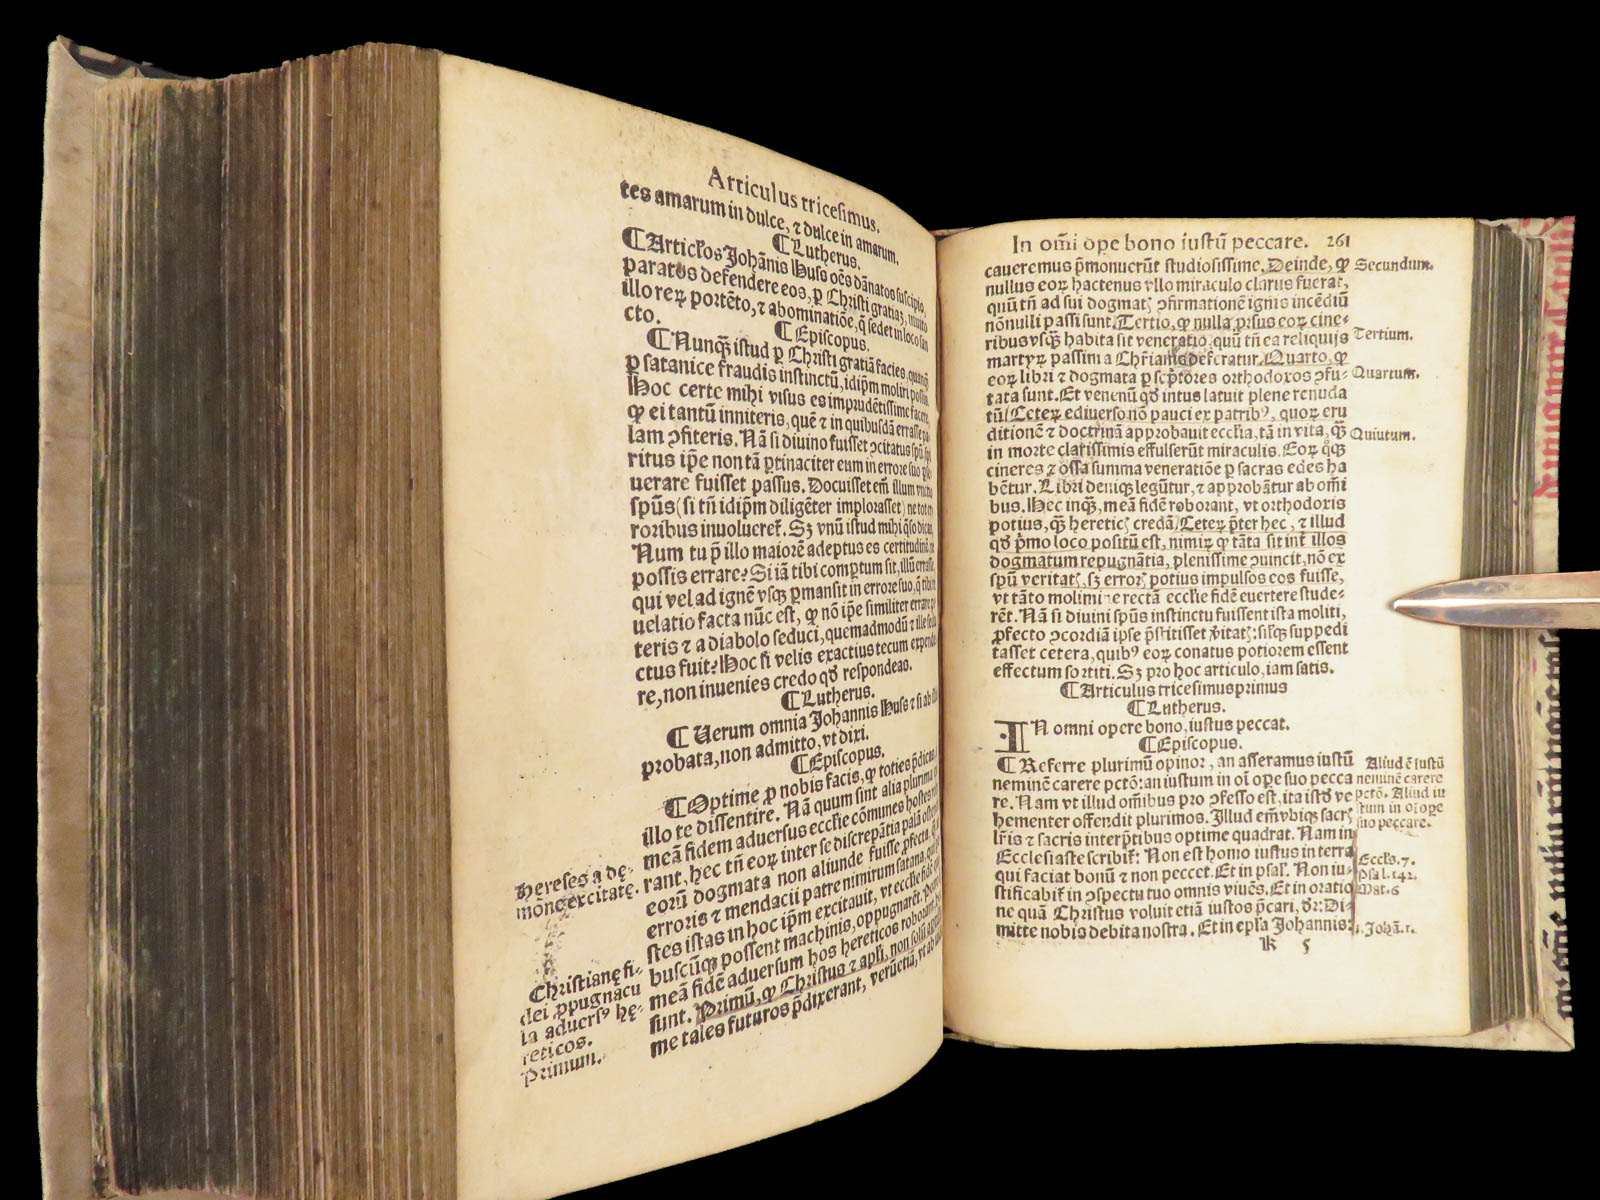 Articulus tricesimus.
tes amarum in dulce, ⁊ dulce in amarum.
¶Lutherus.
¶Articłos Johānis Huss oēs dānatos suscipio,
paratus defendere eos, ꝑ Christi gratiaȝ, inuito
illo reꝝ portēto, ⁊ abominatiōe, q̄ sedet in loco san
cto.
¶Episcopus.
¶Nunqȝ istud ꝑ Christi gratiā facies, quanqȝ
ꝑ satanice fraudis instinctū, idip̄m moliri possis.
Hoc certe mihi visus es imprudētissime facere,
ꝙ ei tantū inniteris, quē ⁊ in quibusdā errasse pa
lam ↄfiteris. Nā si diuino fuisset ↄcitatus spū, spi
ritus ip̄e non tā ꝑtinaciter eum in errore suo ꝑse
uerare fuisset passus. Docuisset em̄ illum vnctio
spūs (si tn̄ idip̄m diligēter implorasset) ne tot er
roribus inuolucret̄. Sȝ vnū istud mihi q̄so dicas,
Num tu p̄ illo maiorē adeptus es certitudinē, ne
possis errare? Si iā tibi comptum sit, illū errasse,
qui vel ad ignē vsqȝ ꝑmansit in errore suo, q̄ tibi re
uelatio facta nūc est, ꝙ nō ip̄e similiter errare po
teris ⁊ a diabolo seduci, quemadmodū ⁊ ille sedu
ctus fuit? Hoc si velis exactius tecum expende
re, non inuenies credo qđ respondeas.
¶Lutherus.
¶Uerum omnia Johannis Huss ⁊ si ab illo
probata, non admitto, vt dixi.
¶Episcopus.
¶Optime ꝓ nobis facis, ꝙ toties p̄dicas,
illo te dissentire. Nā quum sint alia plurima q̄
meā fidem aduersus ecclie cōmunes hostes robo
rant, hec tn̄ eoꝝ inter se discrepātia palā ostendit
eorū dogmata non aliunde fuisse ꝓfecta, q̄
erroris ⁊ mendacii patre nimirum satana, qui
stes istas in hoc ip̄m excitauit, vt ecclie fidē
buscūqȝ possent machinis, oppugnarēt. Porro
meā fidē aduersum hos hereticos roborant,
sunt. Primū, ꝙ Christus ⁊ apłi, non solū
me tales futuros p̄dixerant, verūetiā, vt ab
Hereses a dę
mōne excitatę.
Christianę fi-
dei ꝓpugnacu
la aduersꝰ hę-
reticos.
Primum.
In om̄i ope bono iustū peccare. 261
caueremus p̄monuerūt studiosissime. Deinde, ꝙ
nullus eoꝝ hactenus vllo miraculo clarus fuerat,
quū tn̄ ad sui dogmatꝭ ↄfirmationē ignis incēdiū
nōnulli passi sunt. Tertio, ꝙ nulla ꝓrsus eoꝝ cine-
ribus vsqȝ habita sit veneratio: quū tn̄ ea reliquijs
martyꝝ passim a Chr̄ianis deferatur. Quarto, ꝙ
eoꝝ libri ⁊ dogmata ꝑ scp̄tores orthodoxos ↄfu-
tata sunt. Et venenū qđ intus latuit plene renuda
tū. Ceteꝝ ediuerso nō pauci ex patribꝰ, quoꝝ eru
ditionē ⁊ doctrinā approbauit ecclia, tā in vita, qȝ
in morte clarissimis effulserūt miraculis. Eoꝝ q̊qȝ
cineres ⁊ ossa summa veneratiōe ꝑ sacras edes ha
bētur. Libri deniqȝ legūtur, ⁊ approbātur ab om̄i
bus. Hec inqȝ, meā fidē roborant, vt orthodoxis
potius, qȝ hereticꝭ credā. Ceteꝝ p̄ter hec, ⁊ illud
qđ p̄mo loco positū est, nimiꝝ ꝙ tāta sit int̄ illos
dogmatum repugnātia, plenissime ↄuincit, nō ex
spū veritatꝭ, sȝ errorꝭ potius impulsos eos fuisse,
vt tāto molimine rectā ecclie fidē euertere stude-
rēt. Nā si diuini spūs instinctu fuissent ista moliti,
ꝓfecto ↄcordiā ipse p̄stitisset v̄itatꝭ: silqȝ suppedi
tasset cetera, quibꝰ eoꝝ conatus potiorem essent
effectum sortiti. Sȝ pro hoc articulo, iam satis.
¶Articulus tricesimusprimus
¶Lutherus.
IN omni opere bono, iustus peccat.
¶Episcopus.
¶Referre plurimū opinor, an asseramus iustū
neminē carere pctō: an iustum in oī oꝑe suo pecca
re. Nam vt illud om̄ibus pro ↄfesso est, ita istđ ve
hementer offendit plurimos. Illud em̄ vbiqȝ sacrꝭ
lr̄is ⁊ sacris interp̄tibus optime quadrat. Nam in
Ecclesiaste scribit̄: Non est homo iustus in terra
qui faciat bonū ⁊ non peccet. Et in psał. Non iu-
stificabit̄ in ↄspectu tuo omnis viuēs. Et in oratio
ne quā Christus voluit etiā iustos p̄cari, dr̄: Di-
mitte nobis debita nostra. Et in epła Johannis:
K 5
Secundum.
Tertium.
Quartum.
Quiutum.
Aliud ē iustū
neminē carere
pctō. Aliud iu
stum in oī oꝑe
suo peccare.
Eccłs. 7.
Psal. 142.
Mat. 6
1. Johā. 1.